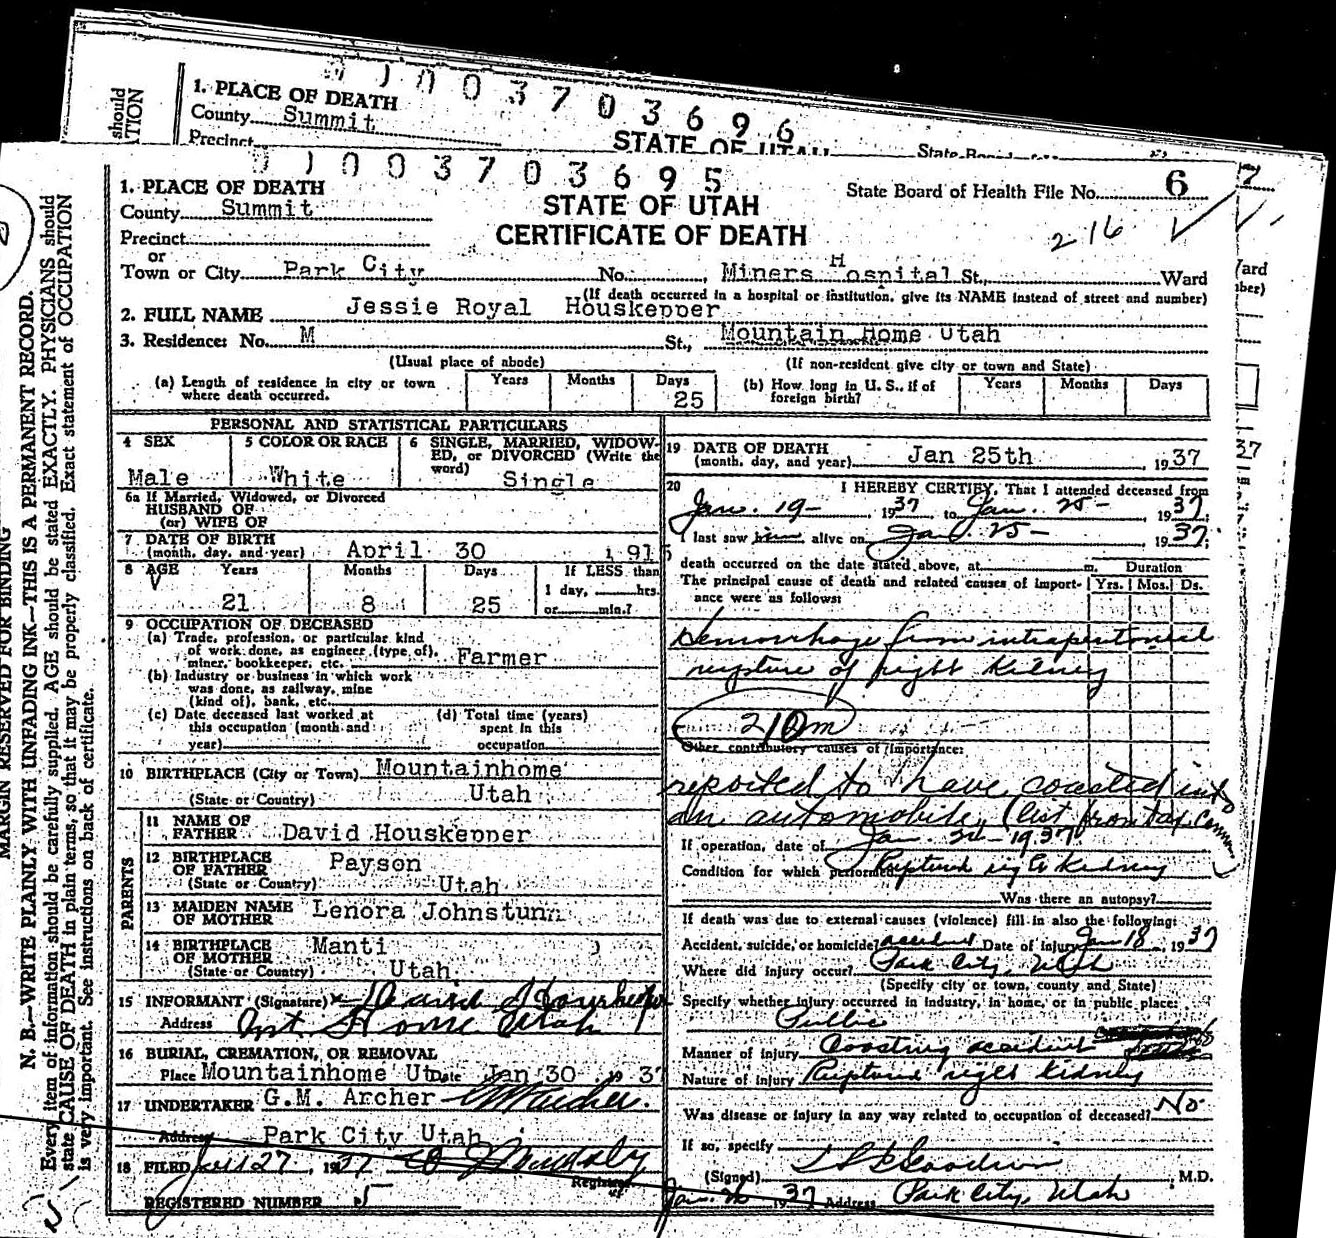 should
ATION
1. PLACE OF DEATH
County Summit
Precinct
0 1 0 0 3 7 0 3 6 9 6
STATE OF UTAH
State Board
7
Ward
37
0 1 0 0 3 7 0 3 6 9 5
1. PLACE OF DEATH
County Summit
Precinct
or
Town or City Park City No. Miners Hospital St., Ward
STATE OF UTAH
CERTIFICATE OF DEATH
State Board of Health File No. 6
216
(If death occurred in a hospital or institution, give its NAME instead of street and number)
2. FULL NAME Jessie Royal Houskepper
3. Residence: No. M St., Mountain Home Utah
(Usual place of abode) (If non-resident give city or town and State)
(a) Length of residence in city or town where death occurred. Years Months Days 25
(b) How long in U. S., if of foreign birth? Years Months Days
PERSONAL AND STATISTICAL PARTICULARS
4 SEX Male
5 COLOR OR RACE White
6 SINGLE, MARRIED, WIDOWED, or DIVORCED (Write the word) Single
6a If Married, Widowed, or Divorced
HUSBAND OF
(or) WIFE OF
7 DATE OF BIRTH
(month, day, and year) April 30 1915
8 AGE Years Months Days If LESS than
21 8 25 1 day, hrs.
or min.?
9 OCCUPATION OF DECEASED
(a) Trade, profession, or particular kind
of work done, as engineer (type of),
miner, bookkeeper, etc. Farmer
(b) Industry or business in which work
was done, as railway, mine
(kind of), bank, etc.
(c) Date deceased last worked at
this occupation (month and
year)
(d) Total time (years)
spent in this
occupation
10 BIRTHPLACE (City or Town) Mountainhome
(State or Country) Utah
PARENTS
11 NAME OF
FATHER David Houskepper
12 BIRTHPLACE
OF FATHER Payson
(State or Country) Utah
13 MAIDEN NAME
OF MOTHER Lenora Johnstunn
14 BIRTHPLACE
OF MOTHER Manti
(State or Country) Utah
15 INFORMANT (Signature) x David Houskeper
Address Mt. Home Utah
16 BURIAL, CREMATION, OR REMOVAL
Place Mountainhome Ut Date Jan 30 1937
17 UNDERTAKER G.M. Archer GM Archer.
Address Park City Utah
18 FILED Jan 27, 1937
Registrar
REGISTERED NUMBER 5
19 DATE OF DEATH
(month, day, and year) Jan 25th, 1937
20 I HEREBY CERTIFY, That I attended deceased from
Jan. 19-, 1937 to Jan. 25-, 1937;
I last saw him alive on Jan. 25-, 1937;
death occurred on the date stated above, at m. Duration
The principal cause of death and related causes of importance were as follows: Yrs. Mos. Ds.
Hemorrhage from intraperitoneal
rupture of right Kidney
210m
Other contributory causes of importance:
reported to have coasted into
an automobile,
If operation, date of Jan 1937
Condition for which performed Ruptured right kidney
Was there an autopsy?
If death was due to external causes (violence) fill in also the following:
Accident, suicide, or homicide? accident Date of injury Jan 18, 1937
Where did injury occur? Park City, Utah
(Specify city or town, county and State)
Specify whether injury occurred in industry, in home, or in public place:
Public
Manner of injury Coasting accident
Nature of Injury Ruptured right kidney
Was disease or injury in any way related to occupation of deceased? No
If so, specify
(Signed) M.D.
Jan. 26 1937 Address Park City, Utah
MARGIN RESERVED FOR BINDING
N. B.—WRITE PLAINLY WITH UNFADING INK—THIS IS A PERMANENT RECORD.
Every item of information should be carefully supplied. AGE should be stated EXACTLY. PHYSICIANS should
state CAUSE OF DEATH in plain terms, so that it may be properly classified. Exact statement of OCCUPATION
is very important. See instructions on back of certificate.